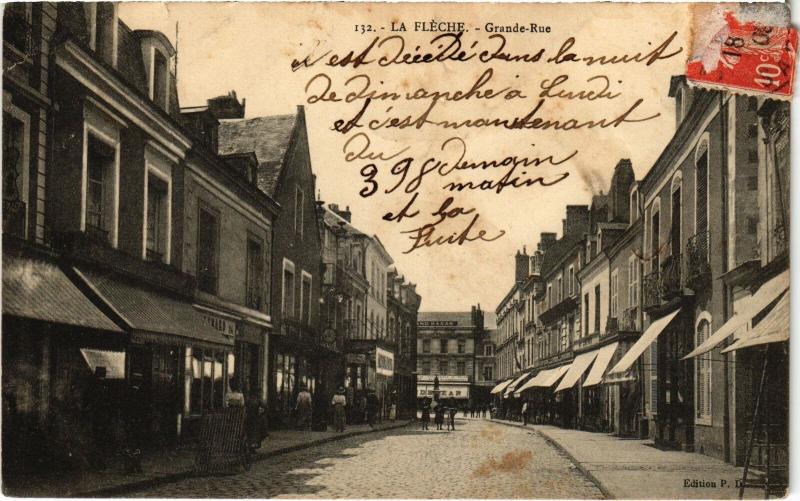 132. - LA FLÈCHE. - Grande-Rue
est décidé dans la nuit
de dimanche a Lundi
et c'est maintenant
du 398 demain
matin
et la
Suite
18
10c
BAZAR
Edition P. D